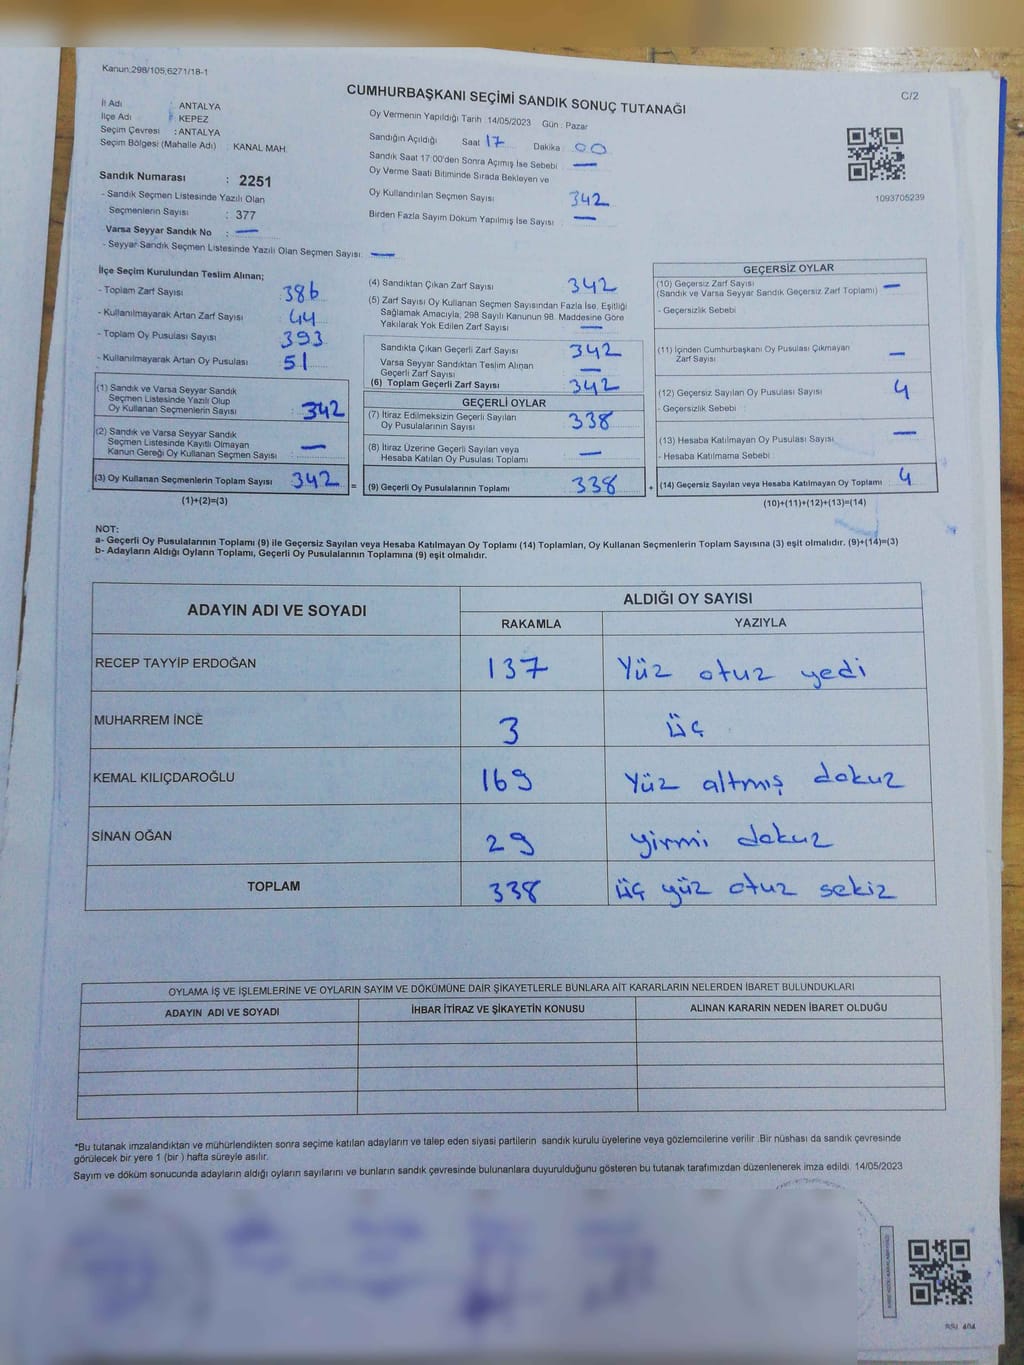 Kanun:298/105,6271/18-1
CUMHURBAŞKANI SEÇİMİ SANDIK SONUÇ TUTANAĞI
C/2
İl Adı : ANTALYA
İlçe Adı : KEPEZ
Seçim Çevresi : ANTALYA
Seçim Bölgesi (Mahalle Adı) : KANAL MAH.
Sandık Numarası : 2251
- Sandık Seçmen Listesinde Yazılı Olan
Seçmenlerin Sayısı : 377
Varsa Seyyar Sandık No : —
- Seyyar Sandık Seçmen Listesinde Yazılı Olan Seçmen Sayısı : —
Oy Vermenin Yapıldığı Tarih :14/05/2023 Gün : Pazar
Sandığın Açıldığı Saat 17 Dakika : 00
Sandık Saat 17:00'den Sonra Açımış İse Sebebi : —
Oy Verme Saati Bitiminde Sırada Bekleyen ve
Oy Kullandırılan Seçmen Sayısı 342
Birden Fazla Sayım Döküm Yapılmış İse Sayısı : —
1093705239
İlçe Seçim Kurulundan Teslim Alınan;
- Toplam Zarf Sayısı : 386
- Kullanılmayarak Artan Zarf Sayısı : 44
- Toplam Oy Pusulası Sayısı : 393
- Kullanılmayarak Artan Oy Pusulası : 51
(1) Sandık ve Varsa Seyyar Sandık
Seçmen Listesinde Yazılı Olup
Oy Kullanan Seçmenlerin Sayısı : 342
(2) Sandık ve Varsa Seyyar Sandık
Seçmen Listesinde Kayıtlı Olmayan
Kanun Gereği Oy Kullanan Seçmen Sayısı : —
(3) Oy Kullanan Seçmenlerin Toplam Sayısı : 342
(1)+(2)=(3)
(4) Sandıktan Çıkan Zarf Sayısı 342
(5) Zarf Sayısı Oy Kullanan Seçmen Sayısından Fazla İse, Eşitliği
Sağlamak Amacıyla, 298 Sayılı Kanunun 98. Maddesine Göre
Yakılarak Yok Edilen Zarf Sayısı : —
Sandıkta Çıkan Geçerli Zarf Sayısı : 342
Varsa Seyyar Sandıktan Teslim Alınan
Geçerli Zarf Sayısı : —
(6) Toplam Geçerli Zarf Sayısı : 342
GEÇERLİ OYLAR
(7) İtiraz Edilmeksizin Geçerli Sayılan
Oy Pusulalarının Sayısı : 338
(8) İtiraz Üzerine Geçerli Sayılan veya
Hesaba Katılan Oy Pusulası Toplamı : —
= (9) Geçerli Oy Pusulalarının Toplamı : 338 +
GEÇERSİZ OYLAR
(10) Geçersiz Zarf Sayısı
(Sandık ve Varsa Seyyar Sandık Geçersiz Zarf Toplamı) : —
- Geçersizlik Sebebi
(11) İçinden Cumhurbaşkanı Oy Pusulası Çıkmayan
Zarf Sayısı : —
(12) Geçersiz Sayılan Oy Pusulası Sayısı : 4
- Geçersizlik Sebebi
(13) Hesaba Katılmayan Oy Pusulası Sayısı : —
- Hesaba Katılmama Sebebi
(14) Geçersiz Sayılan veya Hesaba Katılmayan Oy Toplamı : 4
(10)+(11)+(12)+(13)=(14)
NOT:
a- Geçerli Oy Pusulalarının Toplamı (9) ile Geçersiz Sayılan veya Hesaba Katılmayan Oy Toplamı (14) Toplamları, Oy Kullanan Seçmenlerin Toplam Sayısına (3) eşit olmalıdır. (9)+(14)=(3)
b- Adayların Aldığı Oyların Toplamı, Geçerli Oy Pusulalarının Toplamına (9) eşit olmalıdır.
ADAYIN ADI VE SOYADI
ALDIĞI OY SAYISI
RAKAMLA YAZIYLA
RECEP TAYYİP ERDOĞAN 137 Yüz otuz yedi
MUHARREM İNCE 3 üç
KEMAL KILIÇDAROĞLU 169 Yüz altmış dokuz
SİNAN OĞAN 29 yirmi dokuz
TOPLAM 338 üç yüz otuz sekiz
OYLAMA İŞ VE İŞLEMLERİNE VE OYLARIN SAYIM VE DÖKÜMÜNE DAİR ŞİKAYETLERLE BUNLARA AİT KARARLARIN NELERDEN İBARET BULUNDUKLARI
ADAYIN ADI VE SOYADI İHBAR İTİRAZ VE ŞİKAYETİN KONUSU ALINAN KARARIN NEDEN İBARET OLDUĞU
*Bu tutanak imzalandıktan ve mühürlendikten sonra seçime katılan adayların ve talep eden siyasi partilerin sandık kurulu üyelerine veya gözlemcilerine verilir .Bir nüshası da sandık çevresinde
görülecek bir yere 1 (bir ) hafta süreyle asılır.
Sayım ve döküm sonucunda adayların aldığı oyların sayılarını ve bunların sandık çevresinde bulunanlara duyurulduğunu gösteren bu tutanak tarafımızdan düzenlenerek imza edildi. 14/05/2023